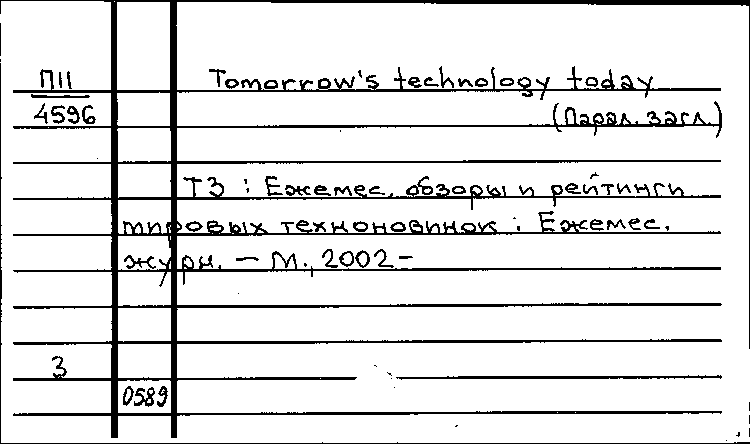 П11 Tomorrow's technology today
4596 (Парал. загл.)
Т3 : Ежемес. обзоры и рейтинги
мировых техноновинок : Ежемес.
журн. – М., 2002–
3
0589